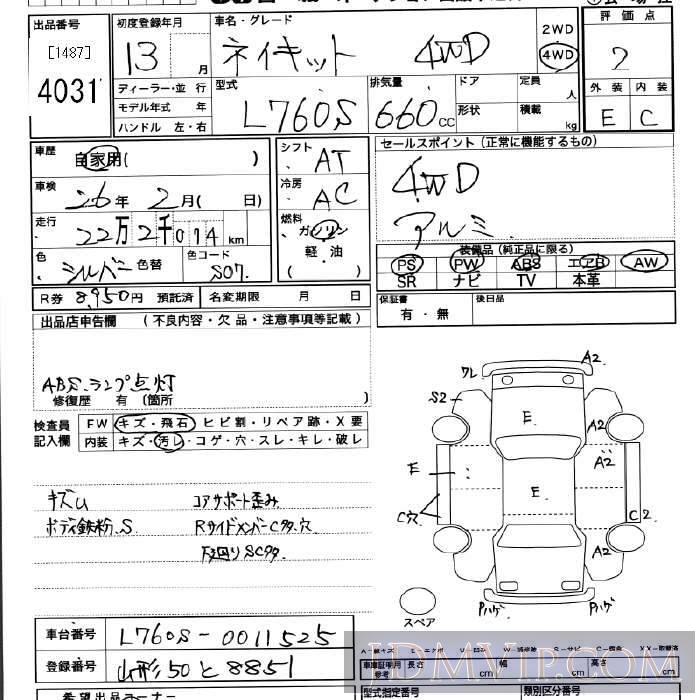 出品番号 初度登録年月 車名・グレード 評価点
[1487] 13 月 ネイキット 4WD 2WD 4WD
4031 ディーラー・並行 型式 排気量 ドア 定員 人 外装 内装
モデル年式 年 L760S 660cc 形状 積載 kg E C
ハンドル 左・右
車歴 自家用( ) シフト AT セールスポイント (正常に機能するもの)
車検 26年 2月( 日) 冷房 AC 4WD
走行 22万2千074km 燃料 ガソリン アルミ
軽・油
( )
色 シルバー 色替 色コード S07. 装備品(純品に限る)
PS PW ABS エアB AW
SR ナビ TV 本革
R券 8,950円 預託済 名変期限 月 日 保証書 有・無 後日品
出品店申告欄 (不良内容・欠品・注意事項等記載)
ABSランプ点灯
修復歴 有 (箇所 )
検査員 FW キズ・飛石・ヒビ割・リペア跡・X要
記入欄 内装 キズ・汚レ・コゲ・穴・スレ・キレ・破レ
キズU コアサポート歪み
ボディ鉄粉.S Rサイドメンバーc々穴
下廻りSC々
ワレ A2.
S2 E A2
E A2
C穴 E C2.
A2
Pハゲ Pハゲ
スペア
車台番号 L760S-0011525
登録番号 山形50と8851
車庫証明用参考 長さ cm 幅 cm 高さ cm
型式指定番号 類別区分番号
JDMVIP.COM